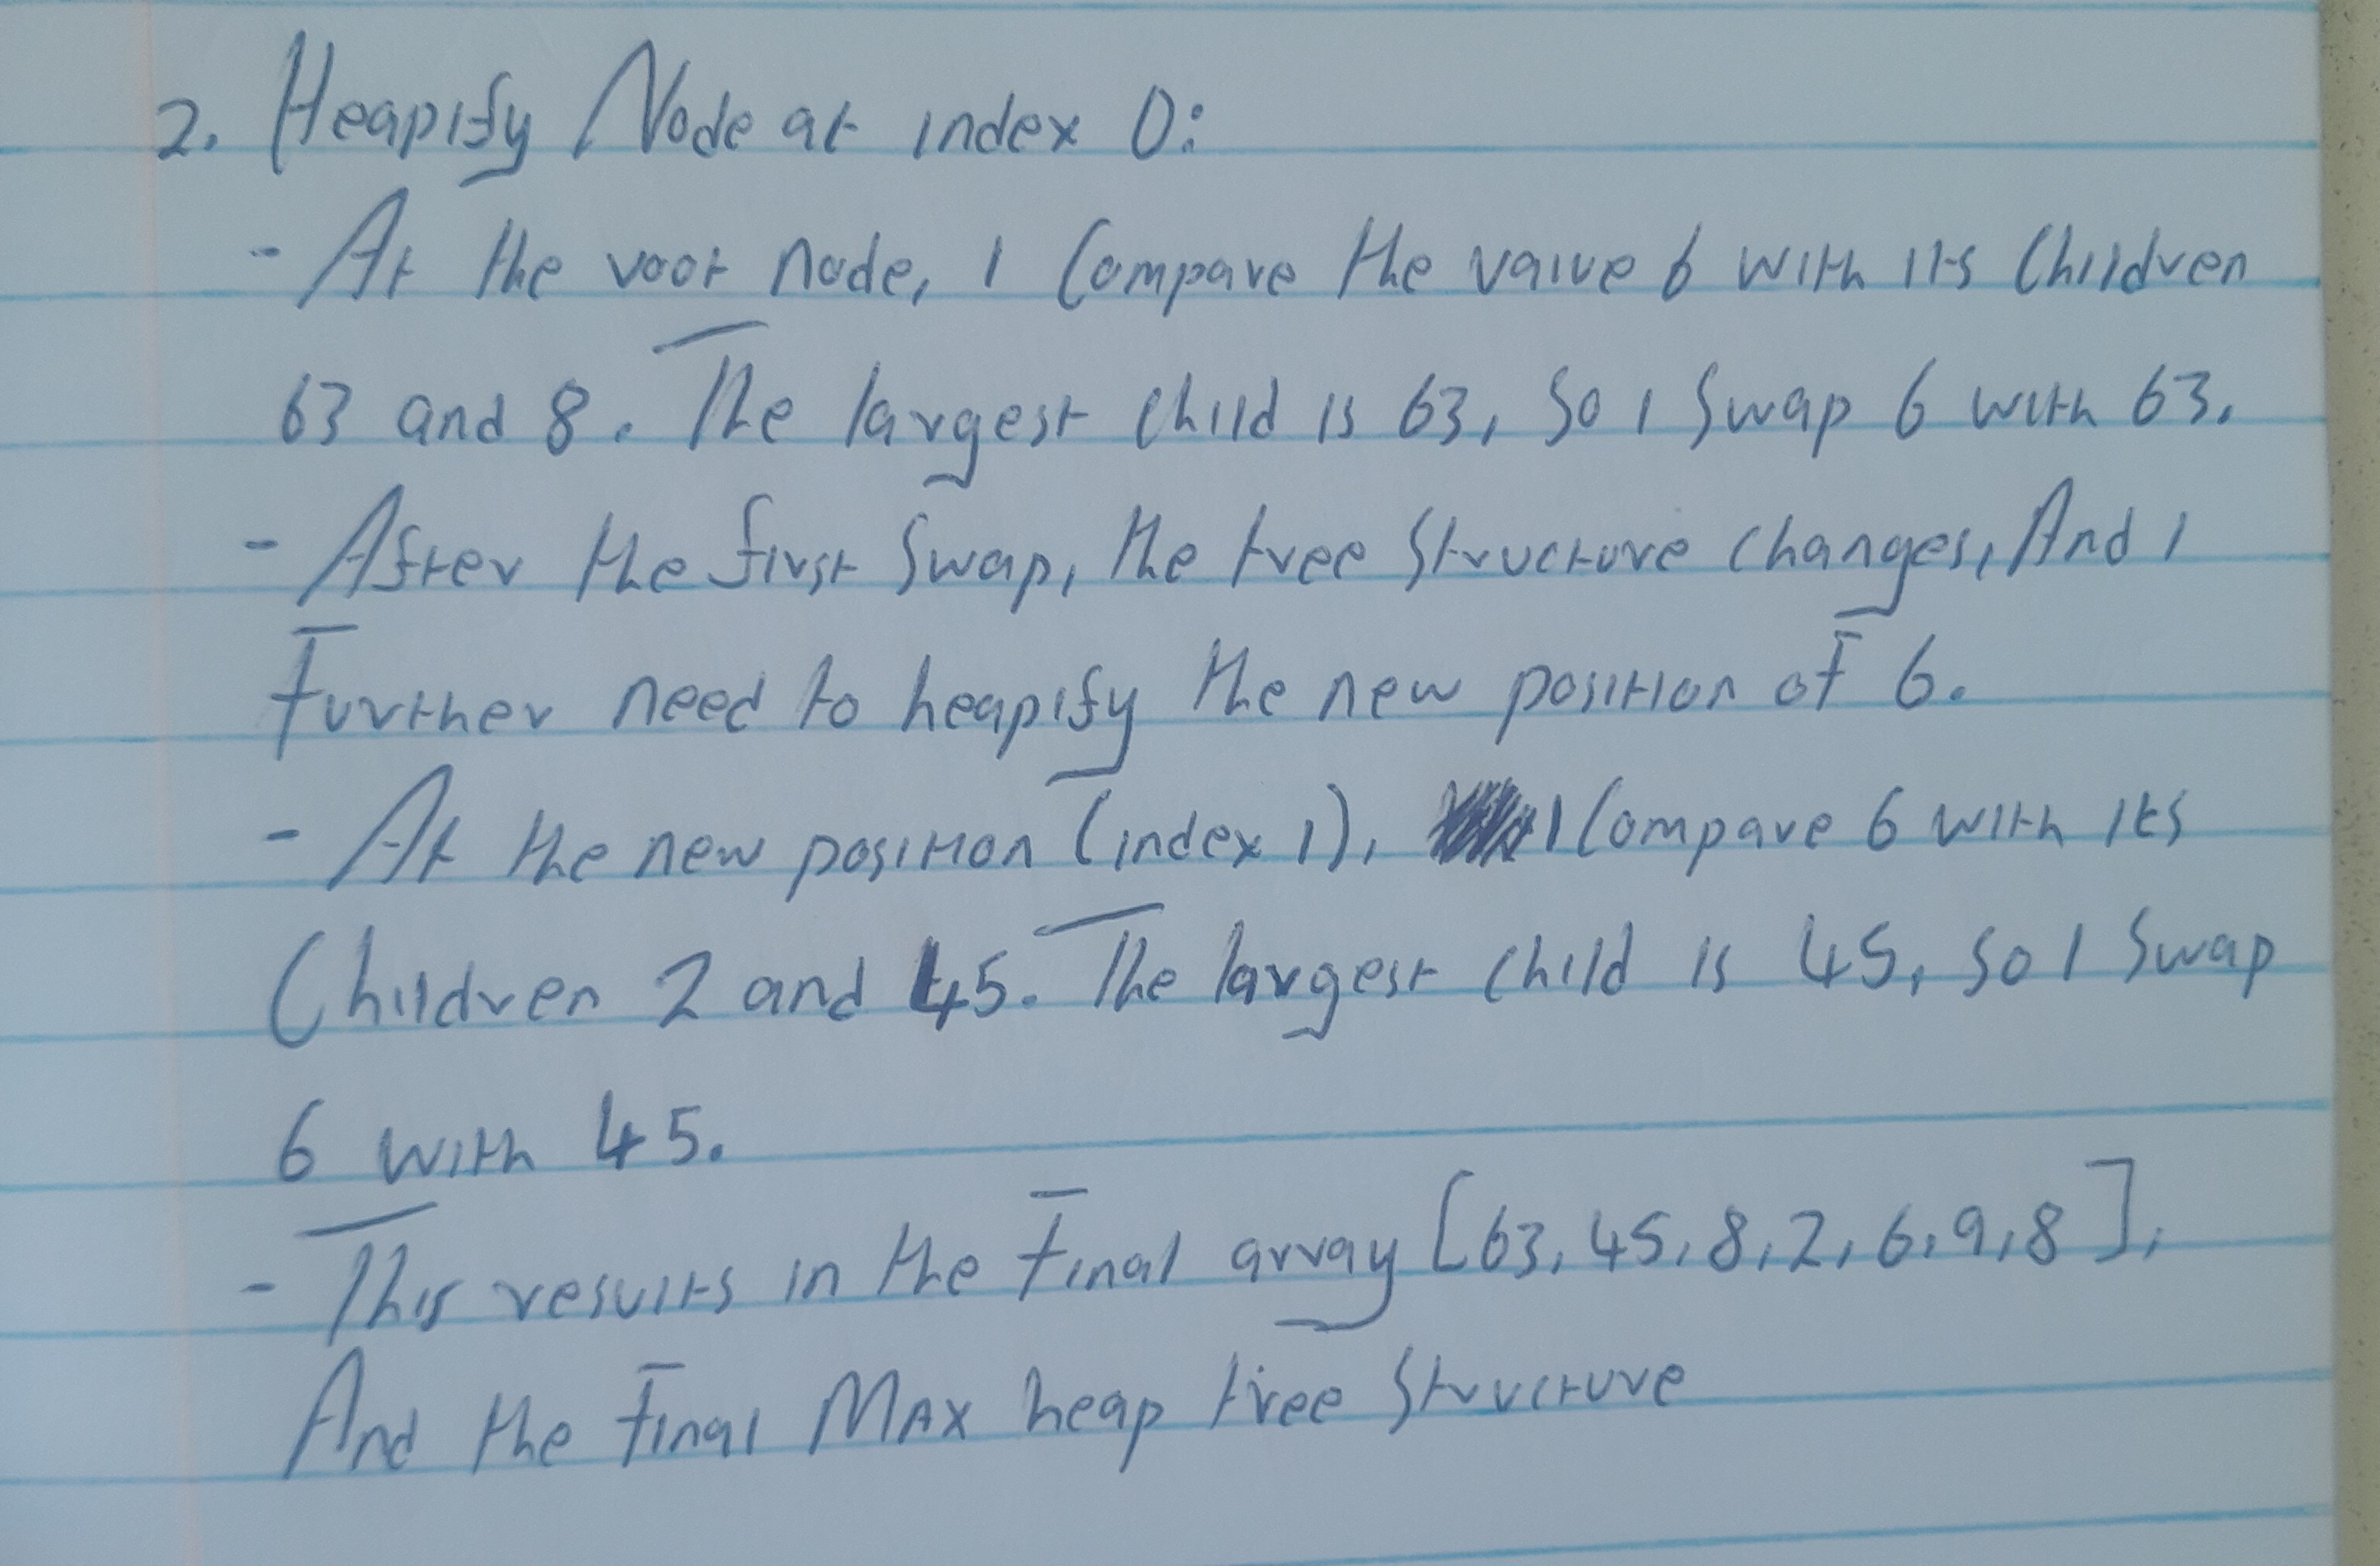 2. Heapify Node at index 0:
- At the root node, I Compare the value 6 with its Children
63 and 8. The largest child is 63, So I Swap 6 with 63.
- After the first Swap, the tree Structure changes, And I
Further need to heapify the new position of 6.
- At the new position (index 1), I Compare 6 with its
Children 2 and 45. The largest child is 45, So I Swap
6 with 45.
- This results in the Final array [63, 45, 8, 2, 6, 9, 8],
And the Final MAX heap tree Structure